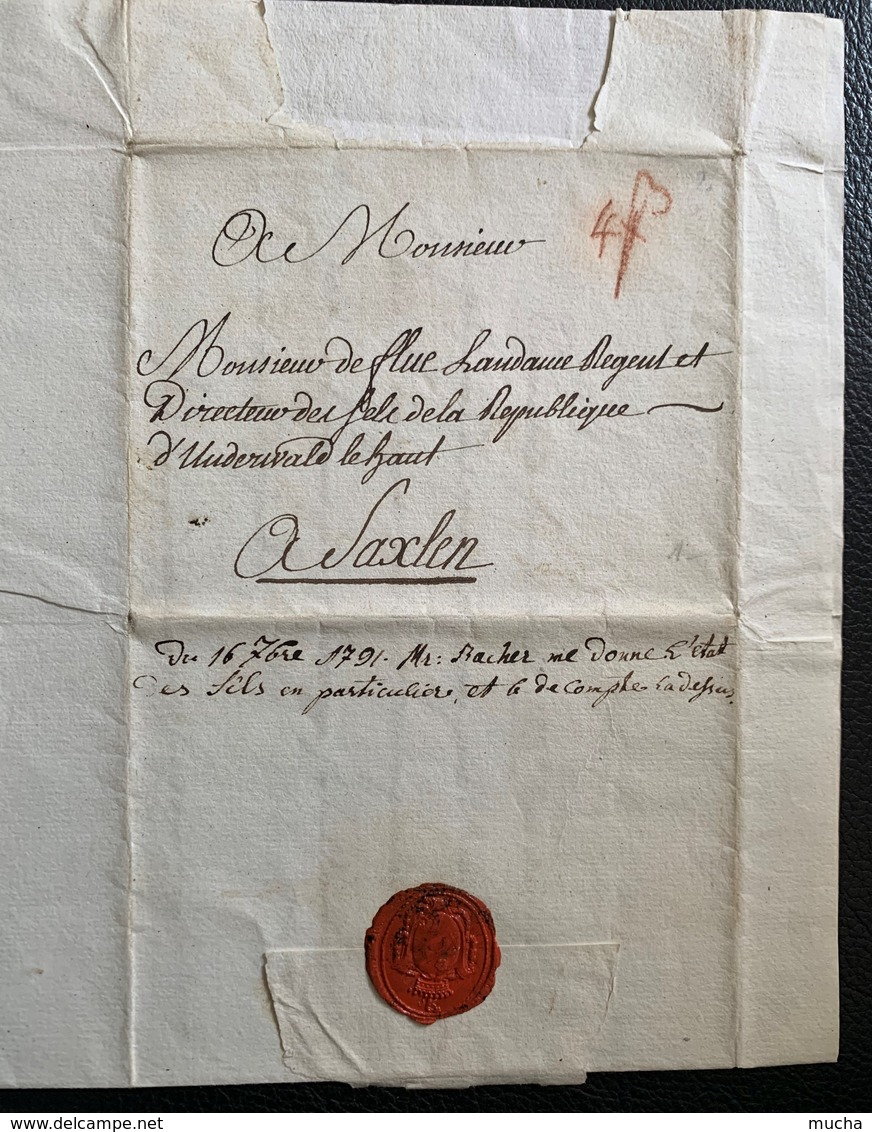 A Monsieur
Monsieur de flue Landame Regent et
Directeur des Sels de la Republique
d'Underwald le haut
A Saxlen
Du 16 7bre 1791. Mr: Bacher me donne L'etat
Des Sels en particulier, et le de Compte La dessus
delcampe.net
mucha